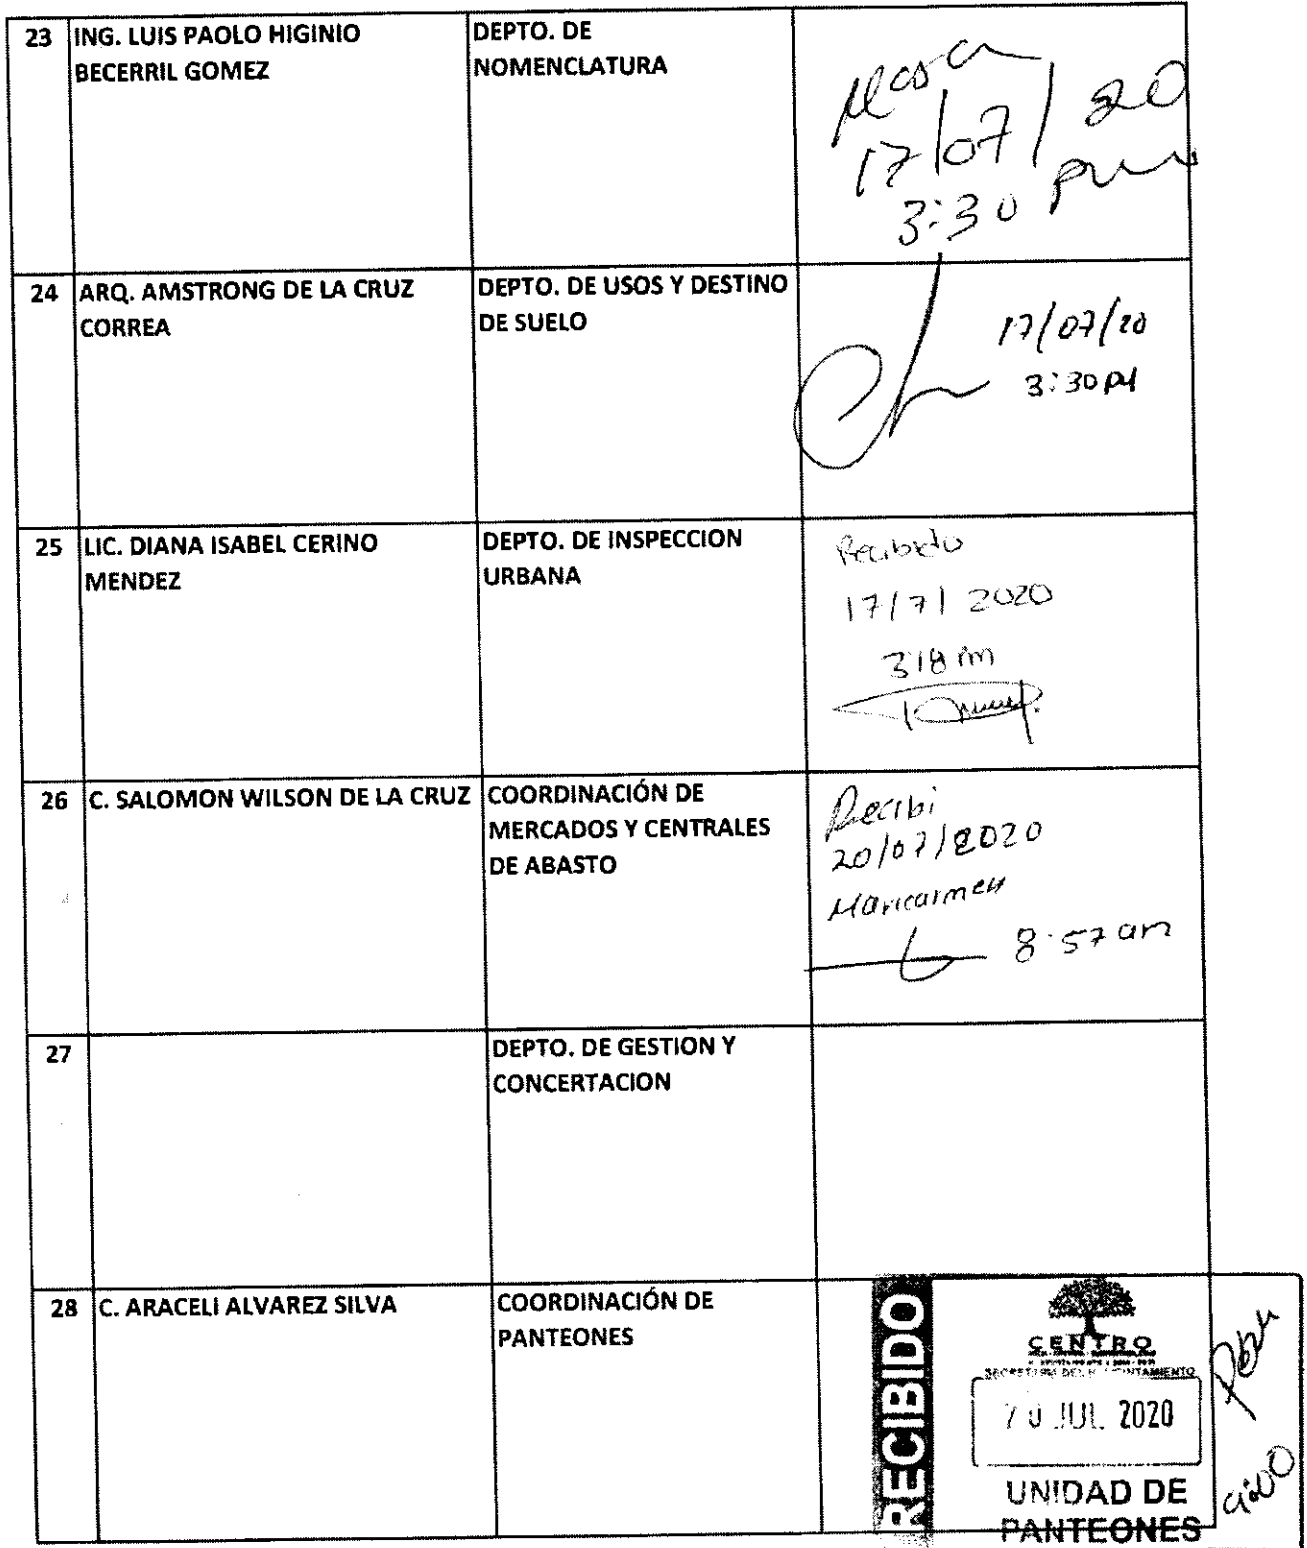 23 ING. LUIS PAOLO HIGINIO
BECERRIL GOMEZ
DEPTO. DE
NOMENCLATURA
17/07/20
3:30 pm
24 ARQ. AMSTRONG DE LA CRUZ
CORREA
DEPTO. DE USOS Y DESTINO
DE SUELO
17/07/20
3:30 PM
25 LIC. DIANA ISABEL CERINO
MENDEZ
DEPTO. DE INSPECCION
URBANA
Recibido
17/7/2020
26 C. SALOMON WILSON DE LA CRUZ
COORDINACIÓN DE
MERCADOS Y CENTRALES
DE ABASTO
Recibi
20/07/2020
Maricarmen
8:57 am
27
DEPTO. DE GESTION Y
CONCERTACION
28 C. ARACELI ALVAREZ SILVA
COORDINACIÓN DE
PANTEONES
RECIBIDO
CENTRO
20 JUL. 2020
UNIDAD DE
PANTEONES